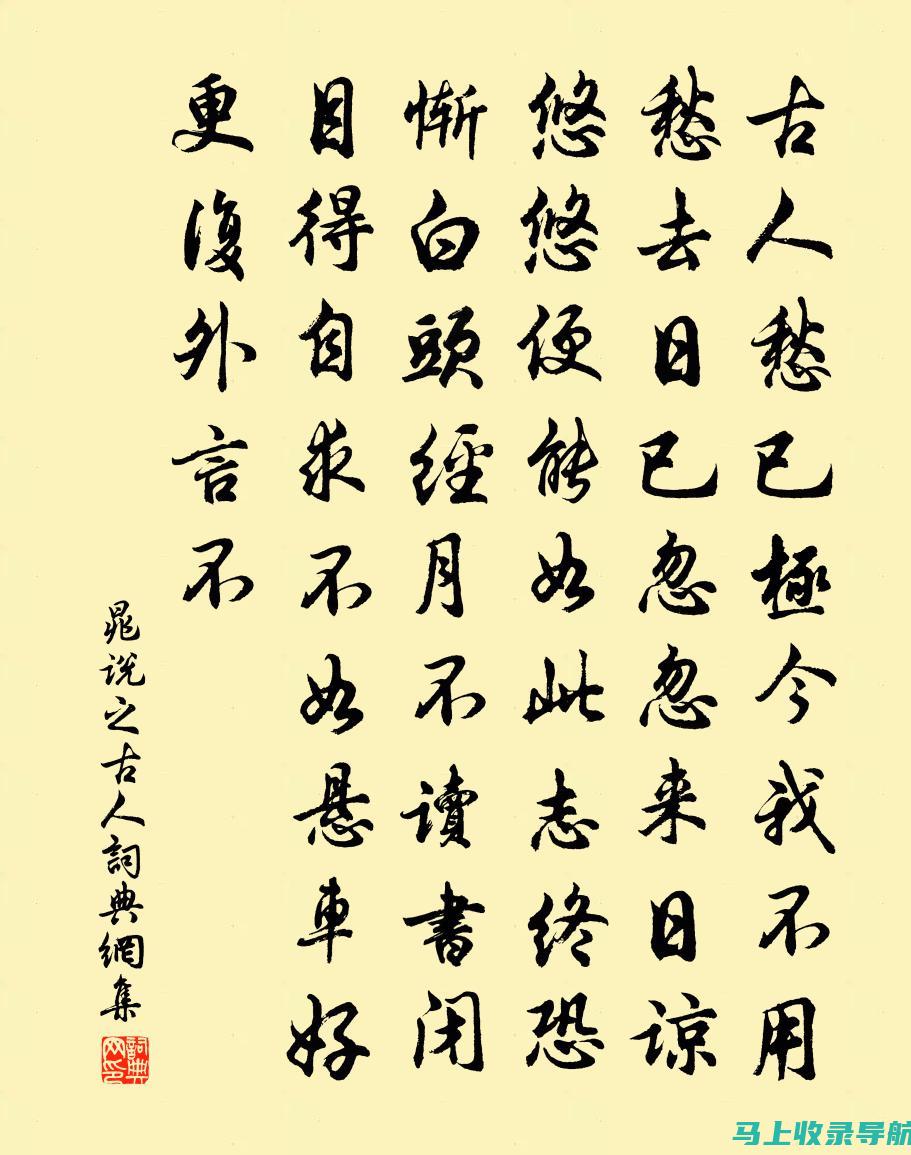 古人愁已極今我不用
愁去日已忽忽来日谅
悠悠便能如此志终恐
慚白頭經月不讀書闭
目得自求不如悬車好
更復外言不
晁说之古人詞典網集
詞典网印
马上收录导航